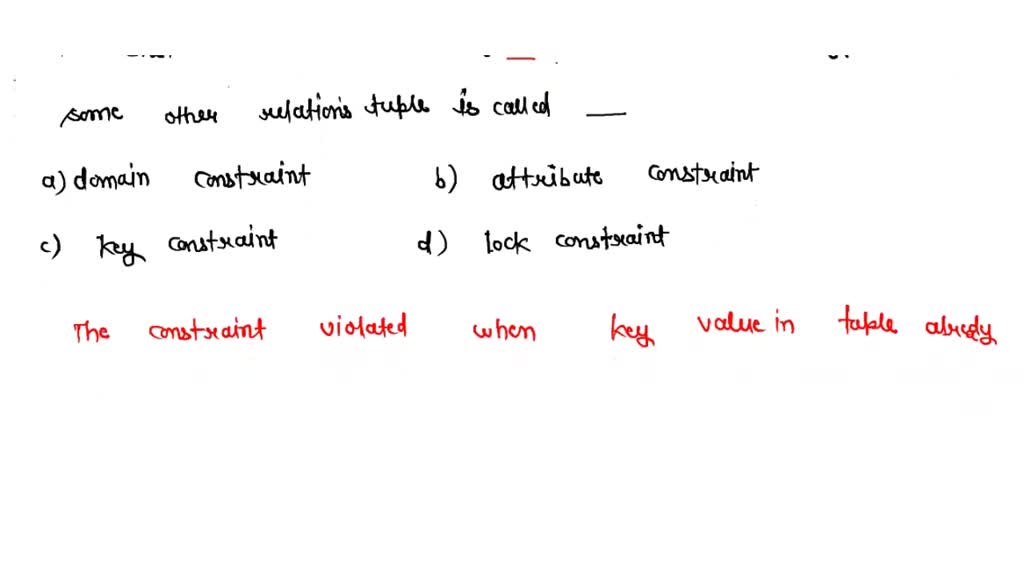 some other relation's tuple is called ___
a) domain constraint b) attribute constraint
c) key constraint d) lock constraint
The constraint violated when key value in tuple already